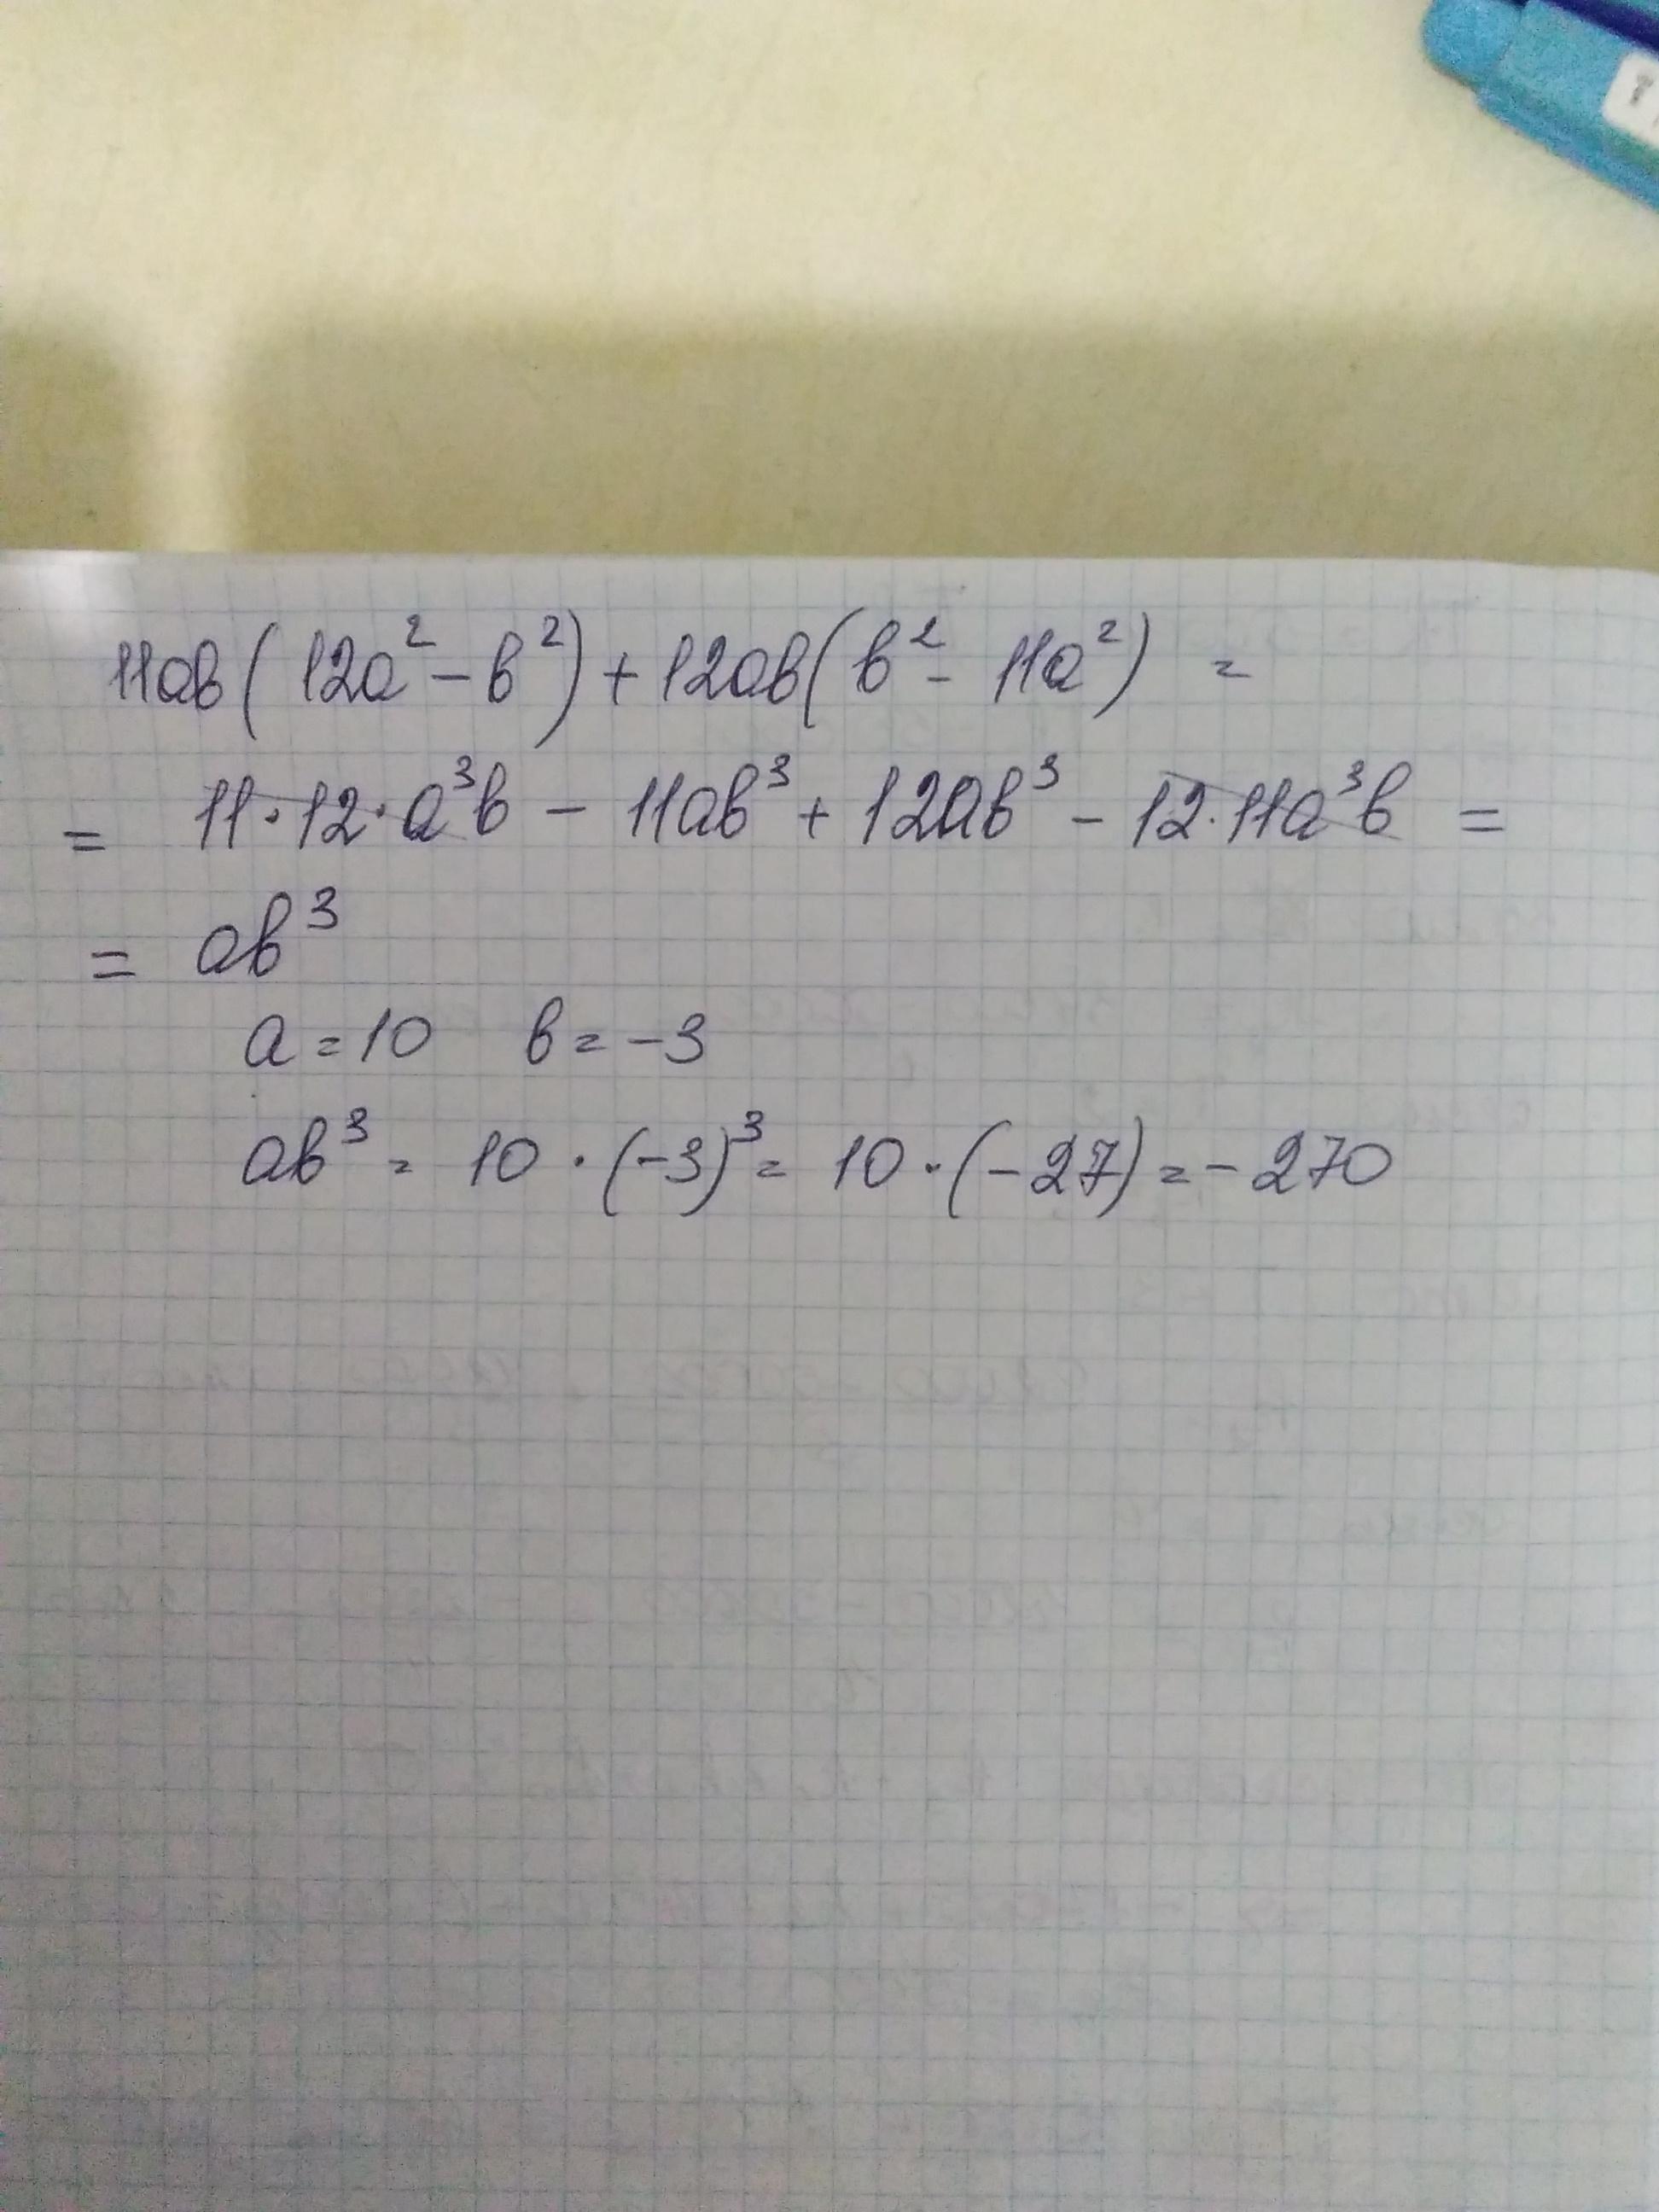 11ab(12a² - b²) + 12ab(b² - 11a²) =
= 11·12·a³b - 11ab³ + 12ab³ - 12·11a³b =
= ab³
a = 10 b = -3
ab³ = 10·(-3)³ = 10·(-27) = -270